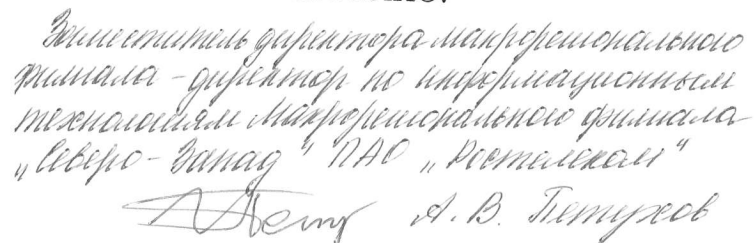 Заместитель директора макрорегионального
филиала - директор по информационным
технологиям макрорегионального филиала
„Северо-Запад" ПАО „Ростелеком"
А. В. Петухов